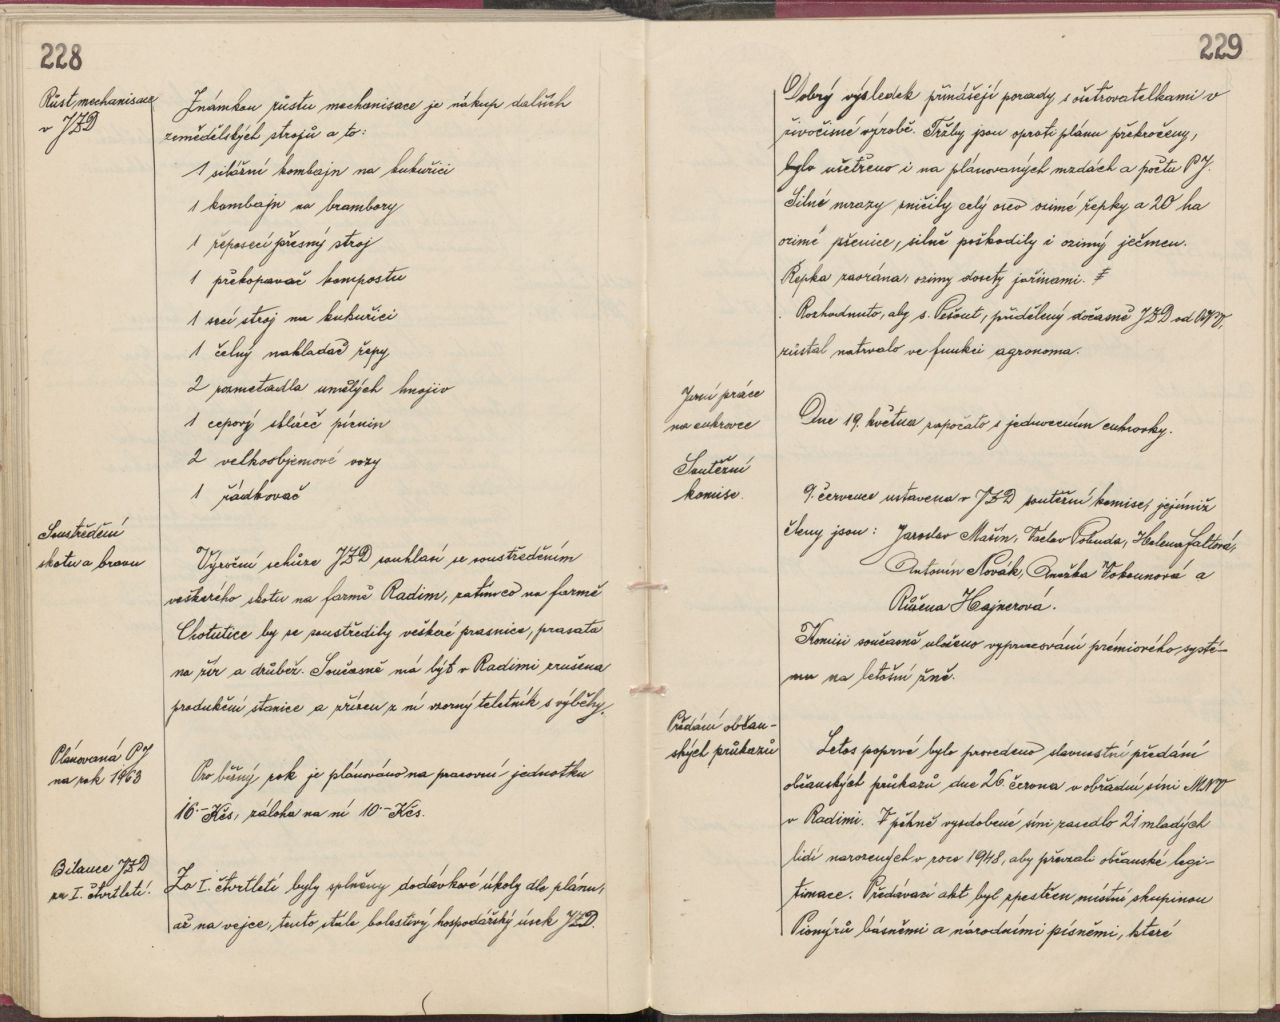 228
Růst mechanisace
v JZD
Známkou růstu mechanisace je nákup dalších
zemědělských strojů a to:
1 silážní kombajn na kukuřici
1 kombajn na brambory
1 řeposecí přesný stroj
1 překopavač kompostu
1 secí stroj na kukuřici
1 čelný nakladač řepy
2 rozmetadla umělých hnojiv
1 cepový sklízeč pícnin
2 velkoobjemové vozy
1 řádkovač
Soustředění
skotu a bravu
Výroční schůze JZD souhlasí se soustředěním
veškerého skotu na farmě Radim, zatímco na farmě
Chotutice by se soustředily veškeré prasnice, prasata
na žír a drůbež. Současně má být v Radimi zrušena
produkční stanice a zřízen z ní vzorný teletník s výběhy.
Plánovaná PJ
na rok 1963
Pro běžný rok je plánováno na pracovní jednotku
16.- Kčs, záloha na ni 10.- Kčs.
Bilance JZD
za I. čtvrtletí.
Za I. čtvrtletí byly splněny dodávkové úkoly dle plánu,
až na vejce, tento stále bolestivý hospodářský úsek JZD.
229
Dobrý výsledek přinášejí porady s ošetřovatelkami v
živočišné výrobě. Tržby jsou oproti plánu překročeny,
bylo ušetřeno i na plánovaných mzdách a počtu PJ.
Silné mrazy zničily celý osev ozimé řepky a 20 ha
ozimé pšenice, silně poškodily i ozimý ječmen.
Řepka zaorána, ozimy dosety jařinami.
Rozhodnuto, aby s. Pešout, přidělený dočasně JZD od ONV,
zůstal natrvalo ve funkci agronoma.
Jarní práce
na cukrovce
Dne 19. května započato s jednocením cukrovky.
Soutěžní
komise.
9. července ustavena v JZD soutěžní komise, jejímiž
členy jsou: Jaroslav Mašín, Václav Pobuda, Helena Faltová,
Antonín Novák, Anežka Vokounová a
Růžena Hajnerová.
Komisi současně uloženo vypracování prémiového systé-
mu na letošní žně.
Předání občan-
ských průkazů
Letos poprvé bylo provedeno slavnostní předání
občanských průkazů dne 26. června v obřadní síni MNV
v Radimi. V pěkně vyzdobené síni zasedlo 21 mladých
lidí narozených v roce 1948, aby převzali občanské legi-
timace. Předávací akt byl zpestřen místní skupinou
Pionýrů básněmi a národními písněmi, které